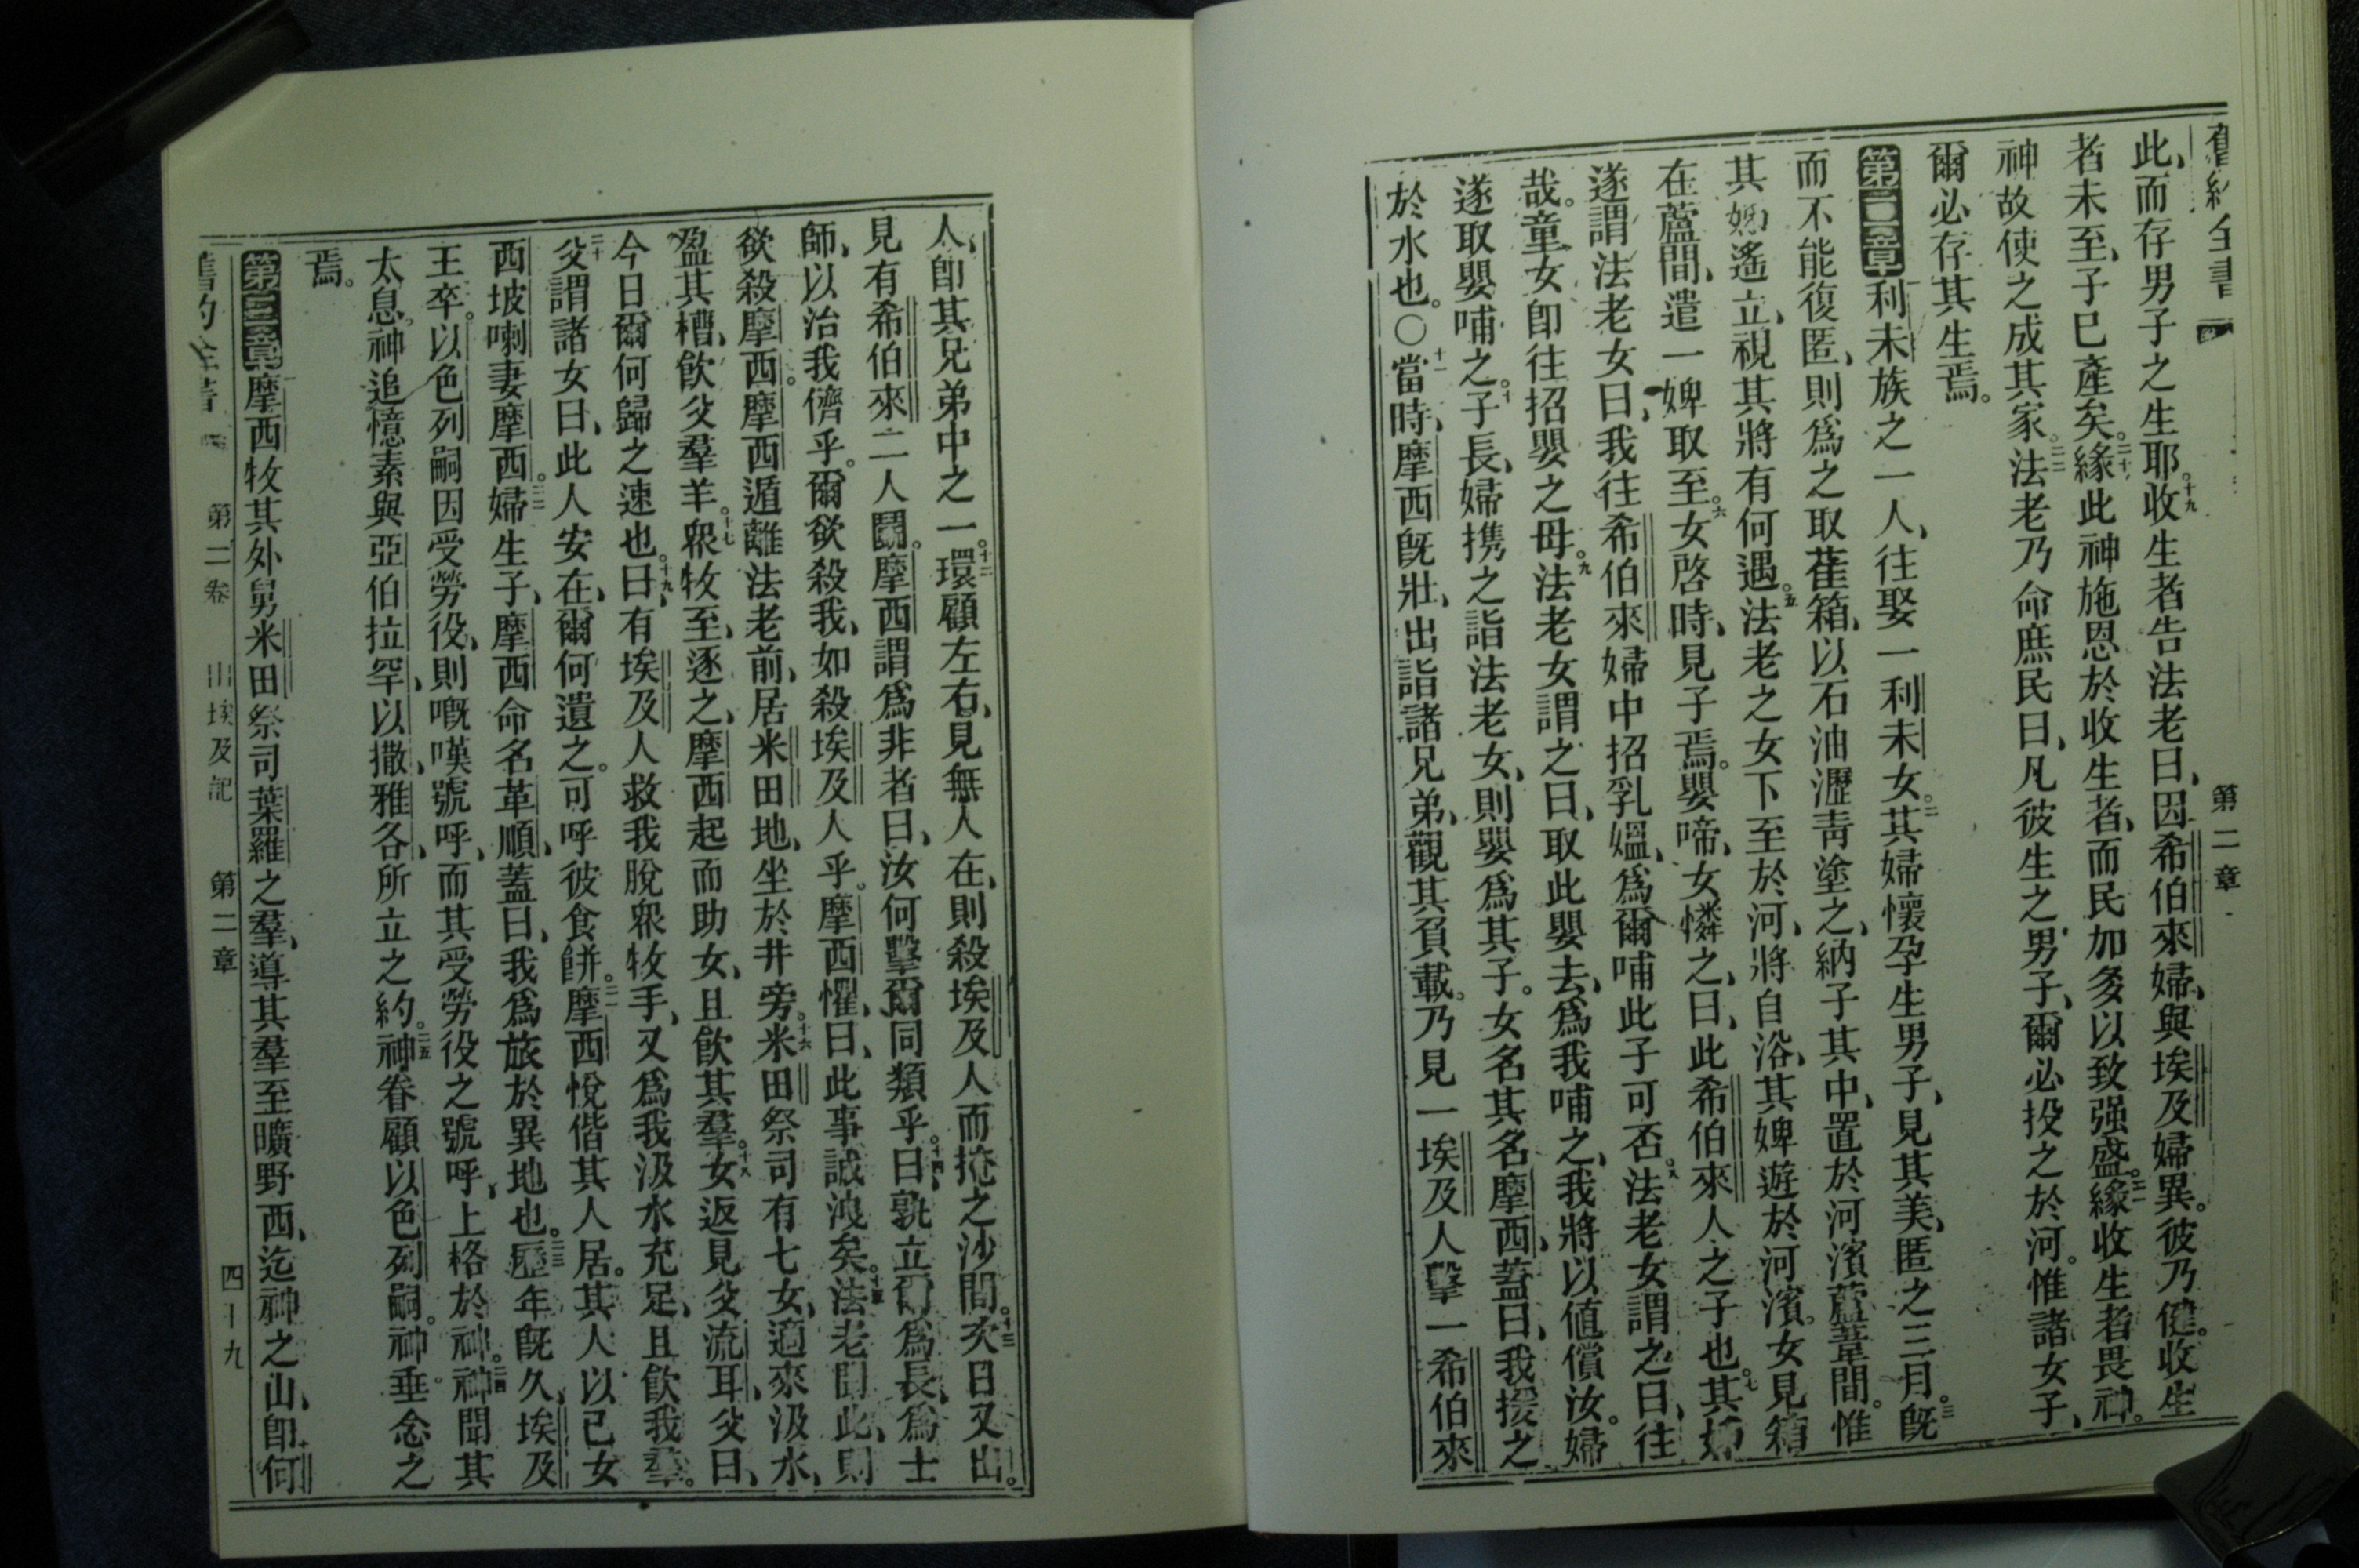 舊約全書 第二章
此、而存男子之生耶。十九收生者告法老曰、因希伯來婦、與埃及婦異。彼乃健。收生
者未至、子已產矣。二十緣此神施恩於收生者、而民加多以致强盛。二一緣收生者畏神。
神故使之成其家。二二法老乃命庶民曰、凡彼生之男子、爾必投之於河。惟諸女子、
爾必存其生焉。
第二章利未族之一人、往娶一利未女。二其婦懷孕生男子、見其美、匿之三月。三旣
而不能復匿、則爲之取萑箱、以石油瀝靑塗之、納子其中、置於河濱蘆葦間。惟
其姊遙立、視其將有何遇。五法老之女下至於河、將自浴、其婢遊於河濱。女見箱
在蘆間、遣一婢取至。六女啓時、見子焉。嬰啼、女憐之、曰、此希伯來人之子也。七其姊
遂謂法老女曰、我往希伯來婦中招乳媼、爲爾哺此子可否。八法老女謂之曰、往
哉。童女卽往招嬰之母。九法老女謂之曰、取此嬰去、爲我哺之、我將以値償汝。婦
遂取嬰哺之。十子長、婦携之詣法老女、則嬰爲其子。女名其名摩西、蓋曰、我援之
於水也。○十一當時、摩西旣壯、出詣諸兄弟、觀其負載。乃見一埃及人擊一希伯來
人、卽其兄弟中之一。十二環顧左右、見無人在、則殺埃及人而掩之沙間。十三次日又出。
見有希伯來二人鬭。摩西謂爲非者曰、汝何擊爾同類乎。十四曰、孰立爾爲長、爲士
師、以治我儕乎。爾欲殺我、如殺埃及人乎。摩西懼、曰、此事誠洩矣。十五法老聞此、則
欲殺摩西。摩西遁離法老前、居米田地、坐於井旁。十六米田祭司有七女、適來汲水、
盈其槽、飮父羣羊。十七衆牧至、逐之、摩西起而助女、且飮其羣。十八女返見父流耳、父曰、
今日爾何歸之速也。十九曰、有埃及人救我脫衆牧手、又爲我汲水充足、且飮我羣。
二十父謂諸女曰、此人安在、爾何遺之。可呼彼食餅。二一摩西悅偕其人居。其人以己女
西坡喇妻摩西。二二婦生子、摩西命名革順、蓋曰、我爲旅於異地也。二三歷年旣久、埃及
王卒。以色列嗣因受勞役、則嘅嘆號呼、而其受勞役之號呼、上格於神。二四神聞其
太息。神追憶素與亞伯拉罕、以撒、雅各、所立之約。二五神眷顧以色列嗣。神垂念之
焉。
第三章摩西牧其外舅米田祭司葉羅之羣、導其羣至曠野西、迄神之山、卽何
舊約全書 第二卷 出埃及記 第二章 四十九